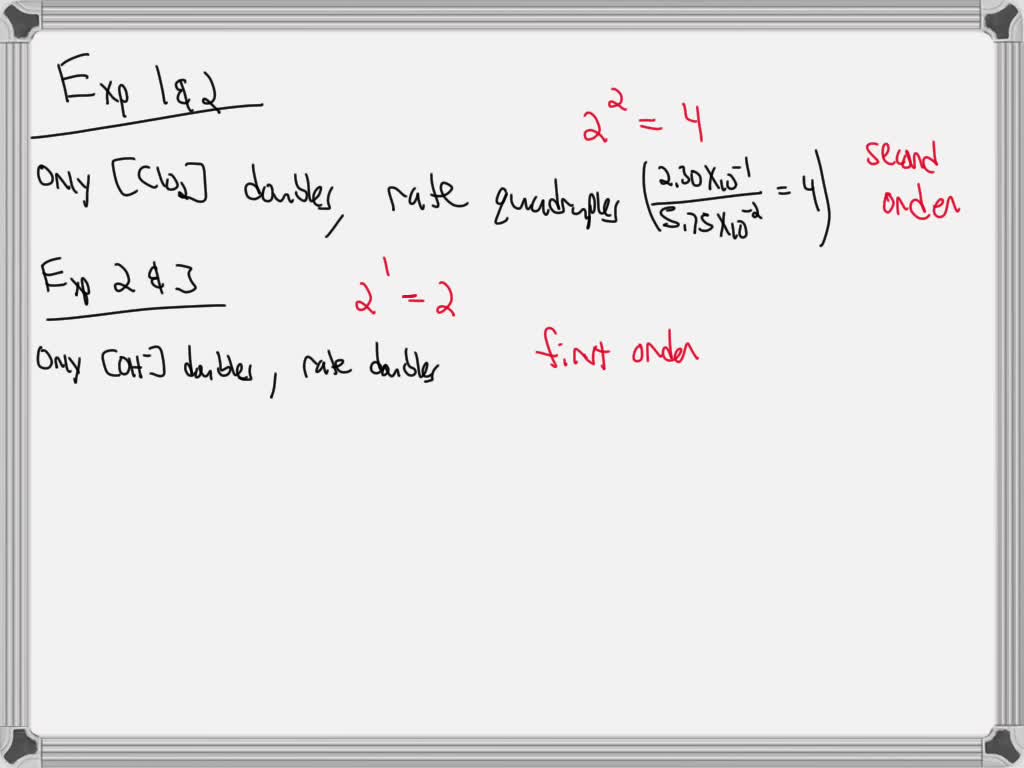 Exp 1 & 2
2² = 4
Only [ClO₂] doubles, rate quadruples (2.30 X10⁻¹ / 5.75 X10⁻² = 4) second order
Exp 2 & 3
2¹ = 2
Only [OH⁻] doubles, rate doubles first order